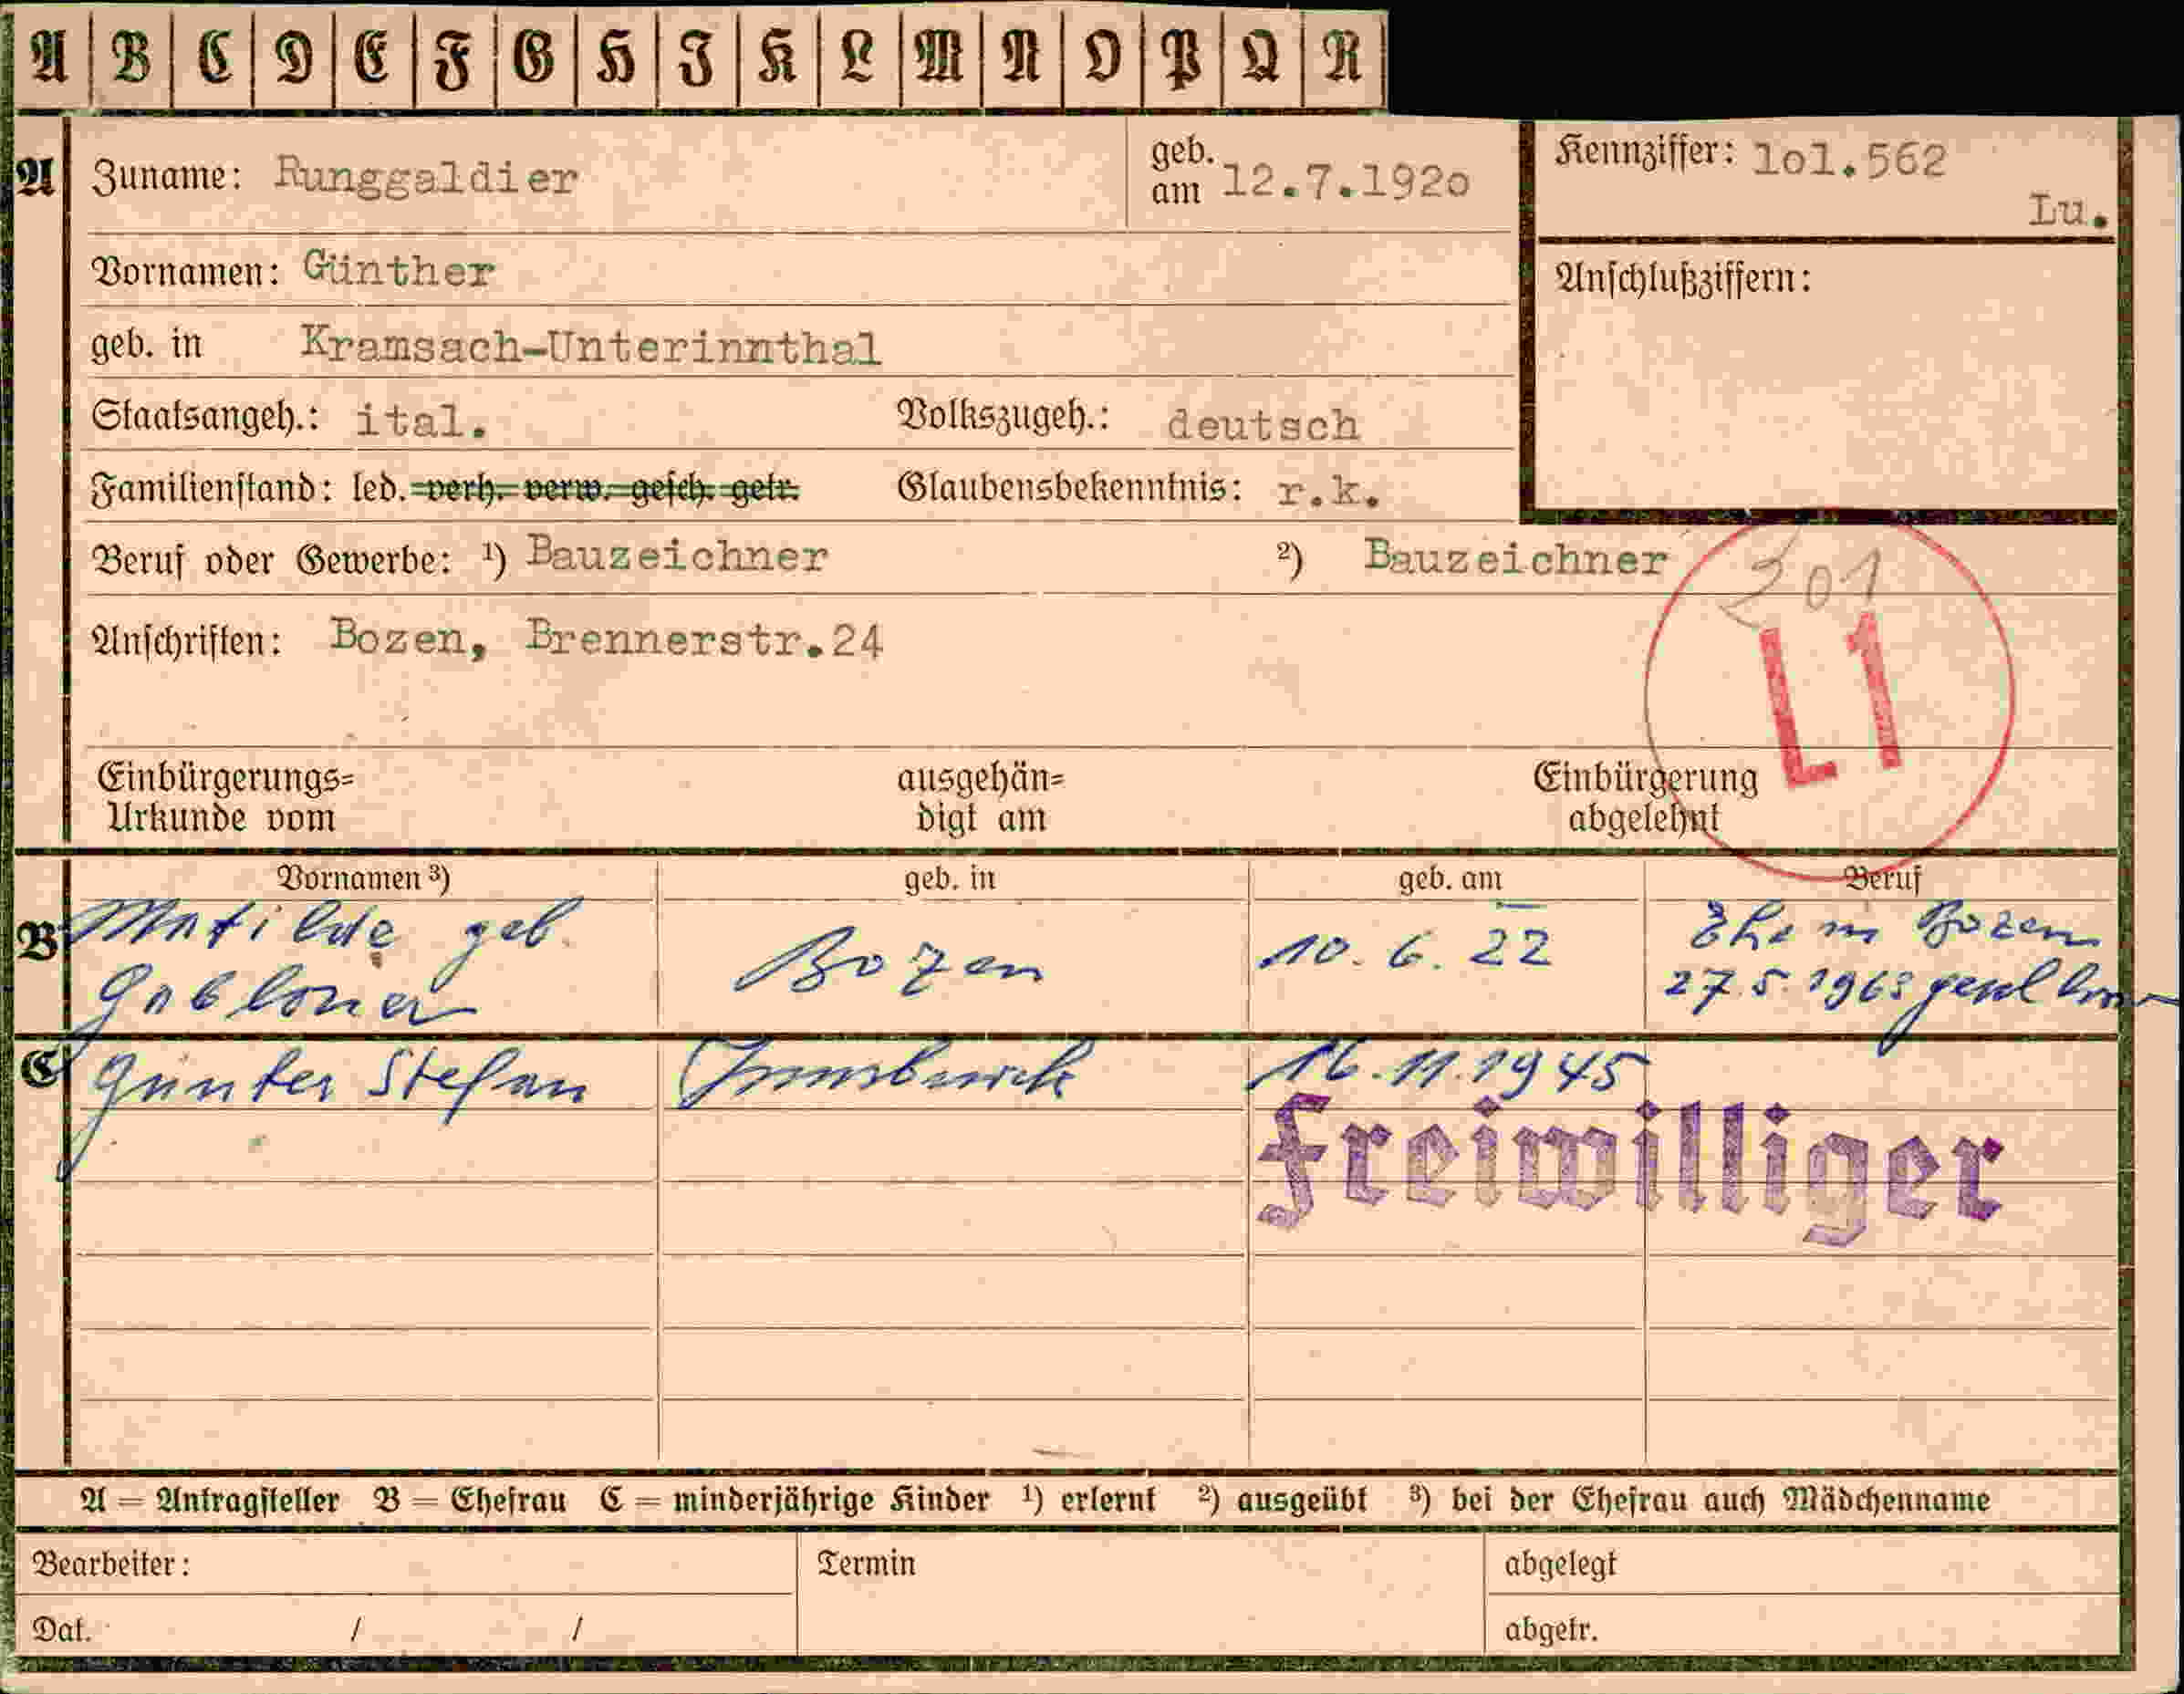 A B C D E F G H I K L M N O P Q R
A Zuname: Runggaldier geb. am 12.7.192o Kennziffer: 1o1.562
Lu.
Vornamen: Günther Anschlußziffern:
geb. in Kramsach-Unterinnthal
Staatsangeh.: ital. Volkszugeh.: deutsch
Familienstand: led. verh. verw. gesch. getr. Glaubensbekenntnis: r.k.
Beruf oder Gewerbe: ¹) Bauzeichner ²) Bauzeichner
201
L1
Anschriften: Bozen, Brennerstr.24
Einbürgerungs= ausgehän= Einbürgerung
Urkunde vom digt am abgelehnt
Vornamen ³) geb. in geb. am Beruf
B Matilde geb. Bozen 10. 6. 22 Ehe in Bozen
Gabloner 27.5.1963
C Günter Stefan Innsbruck 16.11.1945
Freiwilliger
A = Antragsteller B = Ehefrau C = minderjährige Kinder ¹) erlernt ²) ausgeübt ³) bei der Ehefrau auch Mädchenname
Bearbeiter: Termin abgelegt
Dat. / / abgetr.